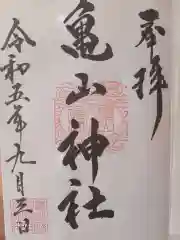 奉拝
亀山神社
令和五年九月三日